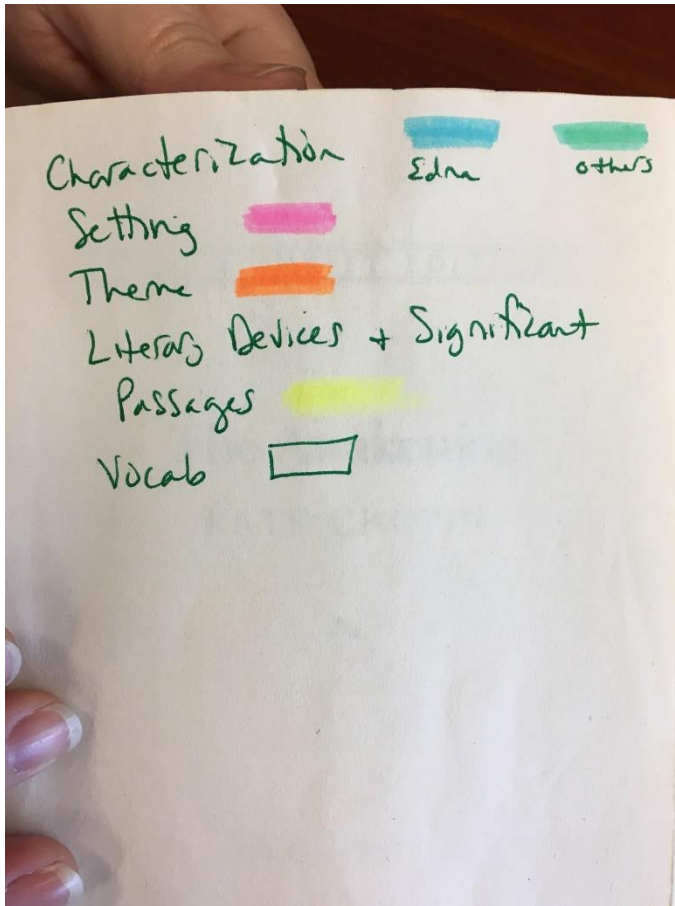 Characterization
Edna others
Setting
Theme
Literary Devices + Significant
Passages
Vocab